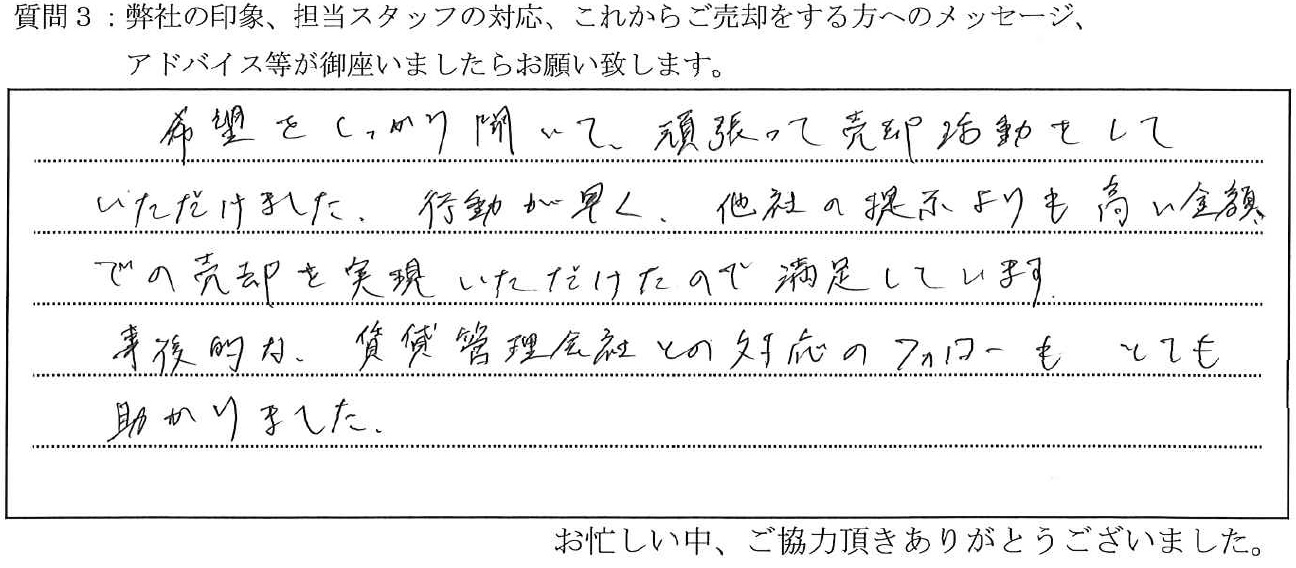 質問3：弊社の印象、担当スタッフの対応、これからご売却をする方へのメッセージ、
アドバイス等が御座いましたらお願い致します。
希望をしっかり聞いて、頑張って売却活動をして
いただけました。行動が早く、他社の提示よりも高い金額
での売却を実現いただけたので満足しています。
事後的な、賃貸管理会社との対応のフォローも とても
助かりました。
お忙しい中、ご協力頂きありがとうございました。